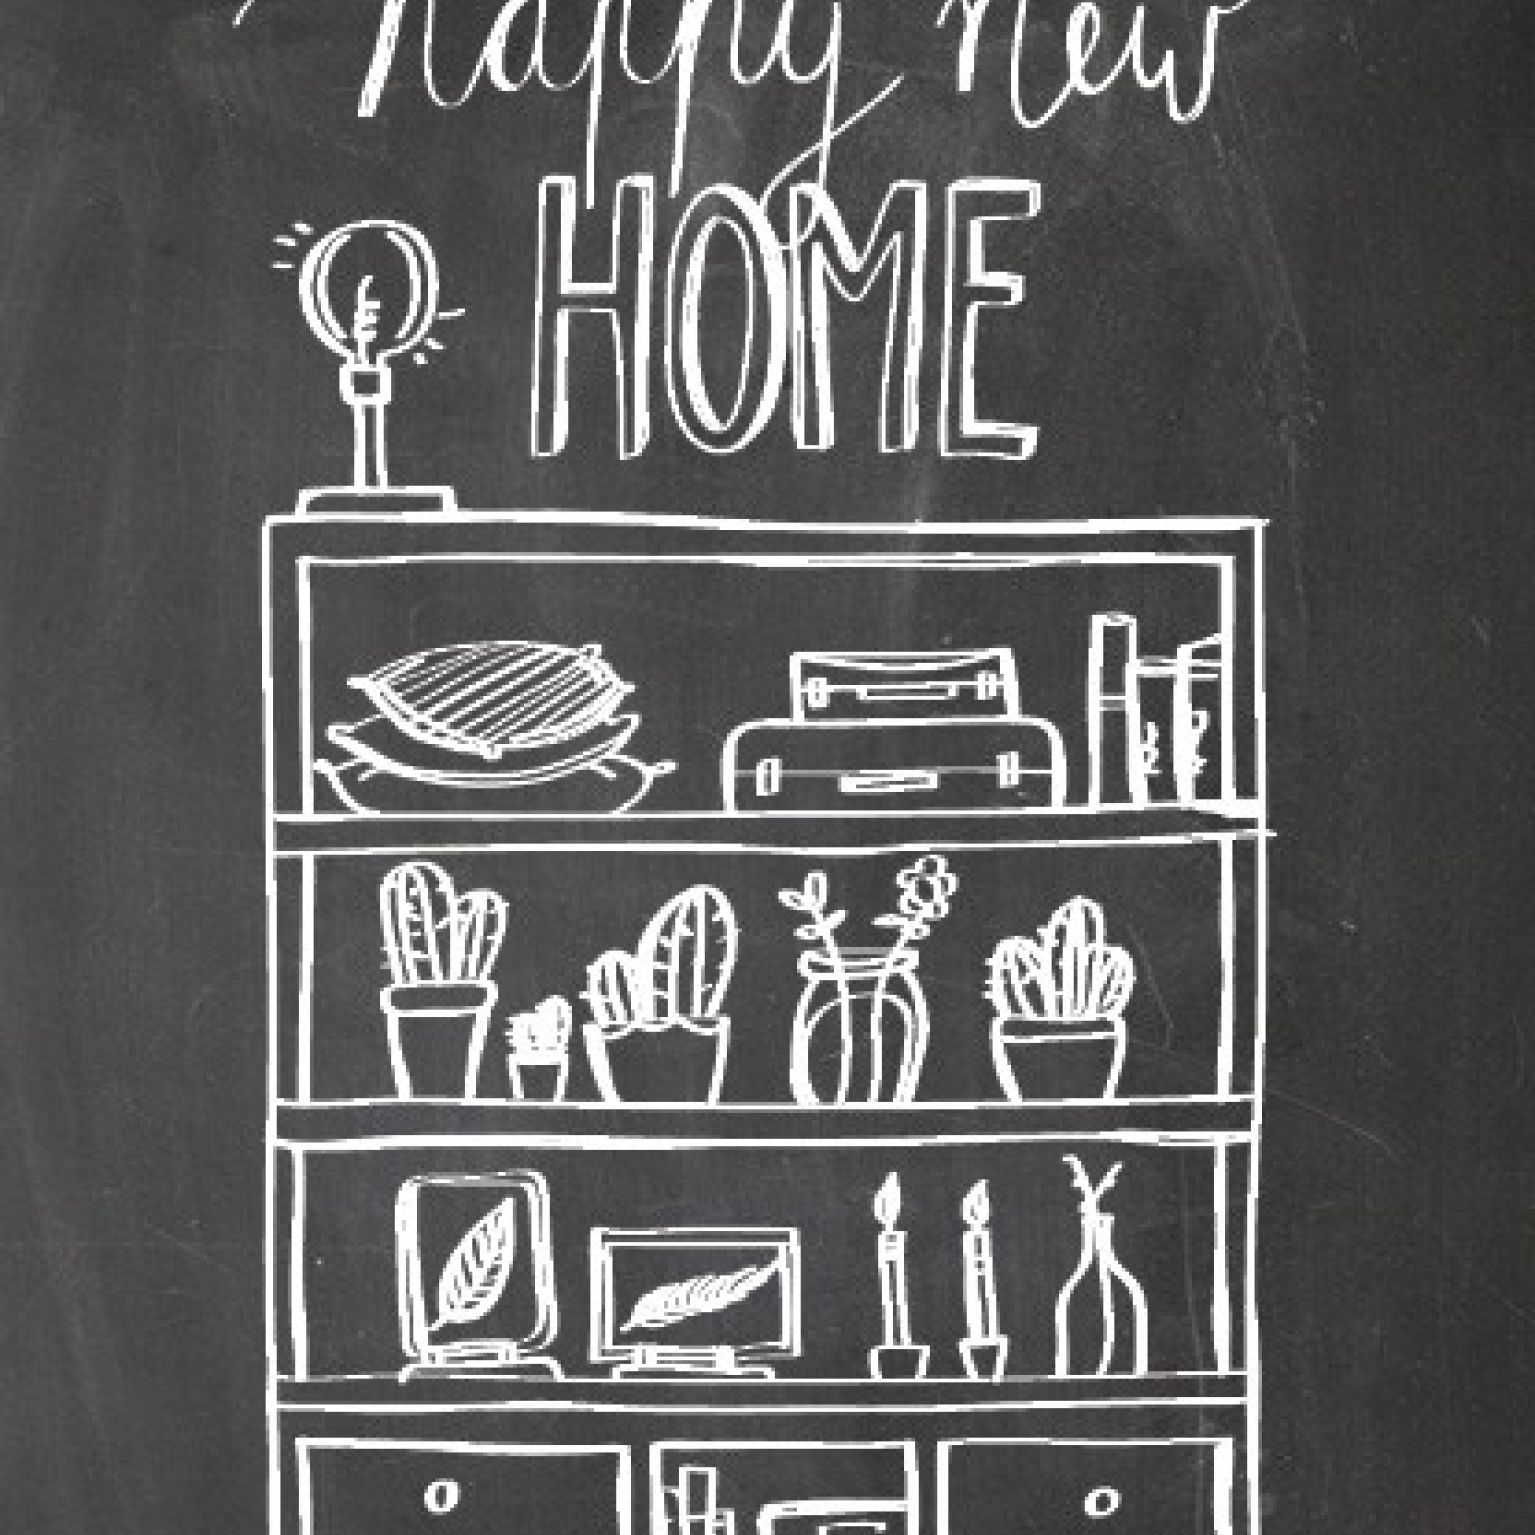 happy new
HOME